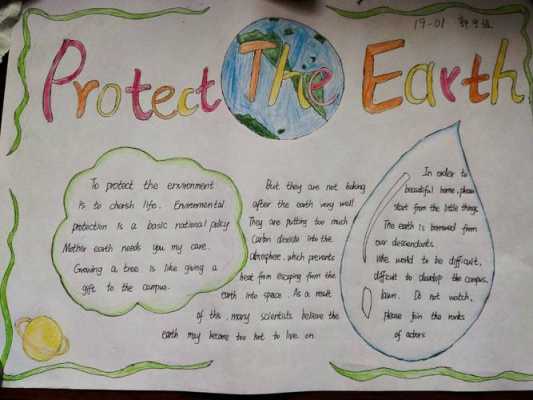 19-01
Protect The Earth
To protect the environment
is to charish life. Environmental
protection is a basic national policy
Mother earth needs you my care.
Growing a tree is like giving a
gift to the campus.
But they are not taking
after the earth very well
They are putting too much
Carbon dioxide into the
atmosphere, which prevents
heat from escaping from the
earth into space. As a result
of this, many scientists believe the
earth may become too hot to live on
In order to
beautiful home, please
start from the little things
The earth is borrowed from
our descendants.
Who would to be difficult,
difficult to develop the campus
lawn. Do not watch,
please join the ranks
of actors